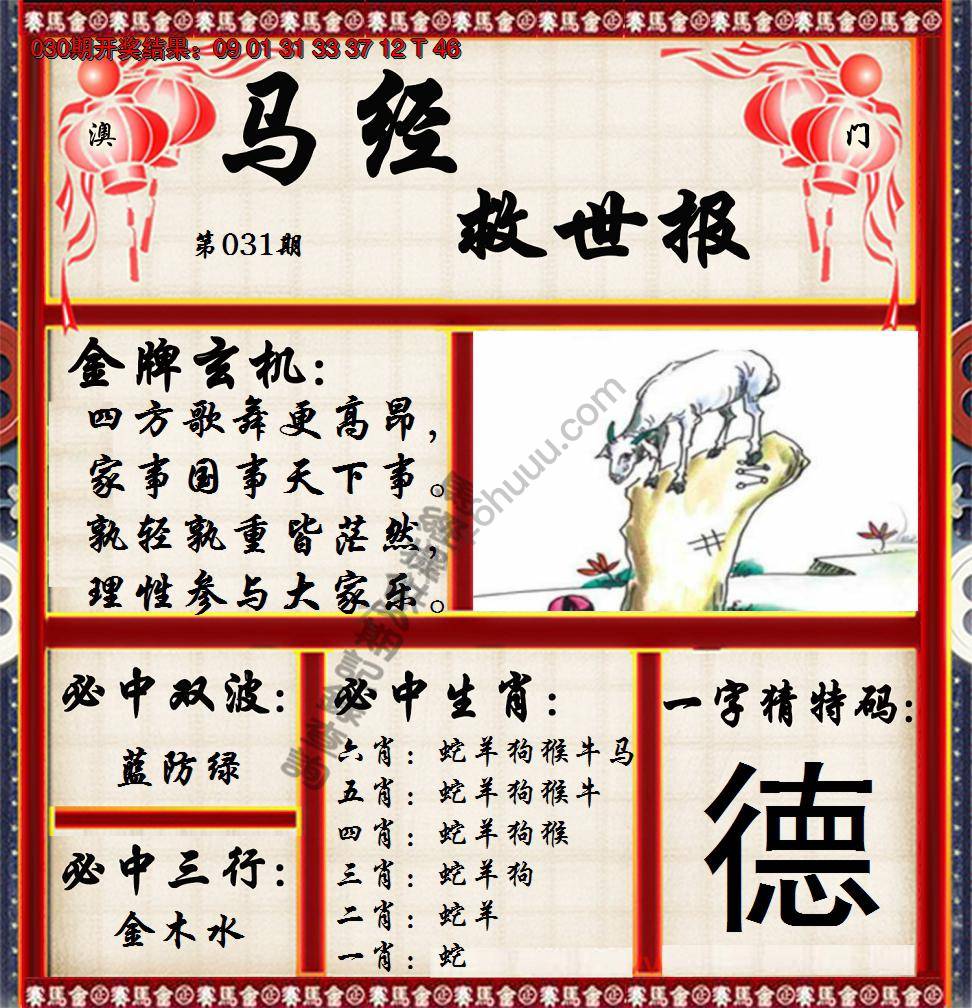 030期开奖结果：09 01 31 33 37 12 T 46
澳 门
马经
救世报
第031期
金牌玄机：
四方歌舞更高昂，
家事国事天下事。
孰轻孰重皆茫然，
理性参与大家乐。
必中双波：
蓝防绿
必中三行：
金木水
必中生肖：
六肖：蛇羊狗猴牛马
五肖：蛇羊狗猴牛
四肖：蛇羊狗猴
三肖：蛇羊狗
二肖：蛇羊
一肖：蛇
一字猜特码：
德